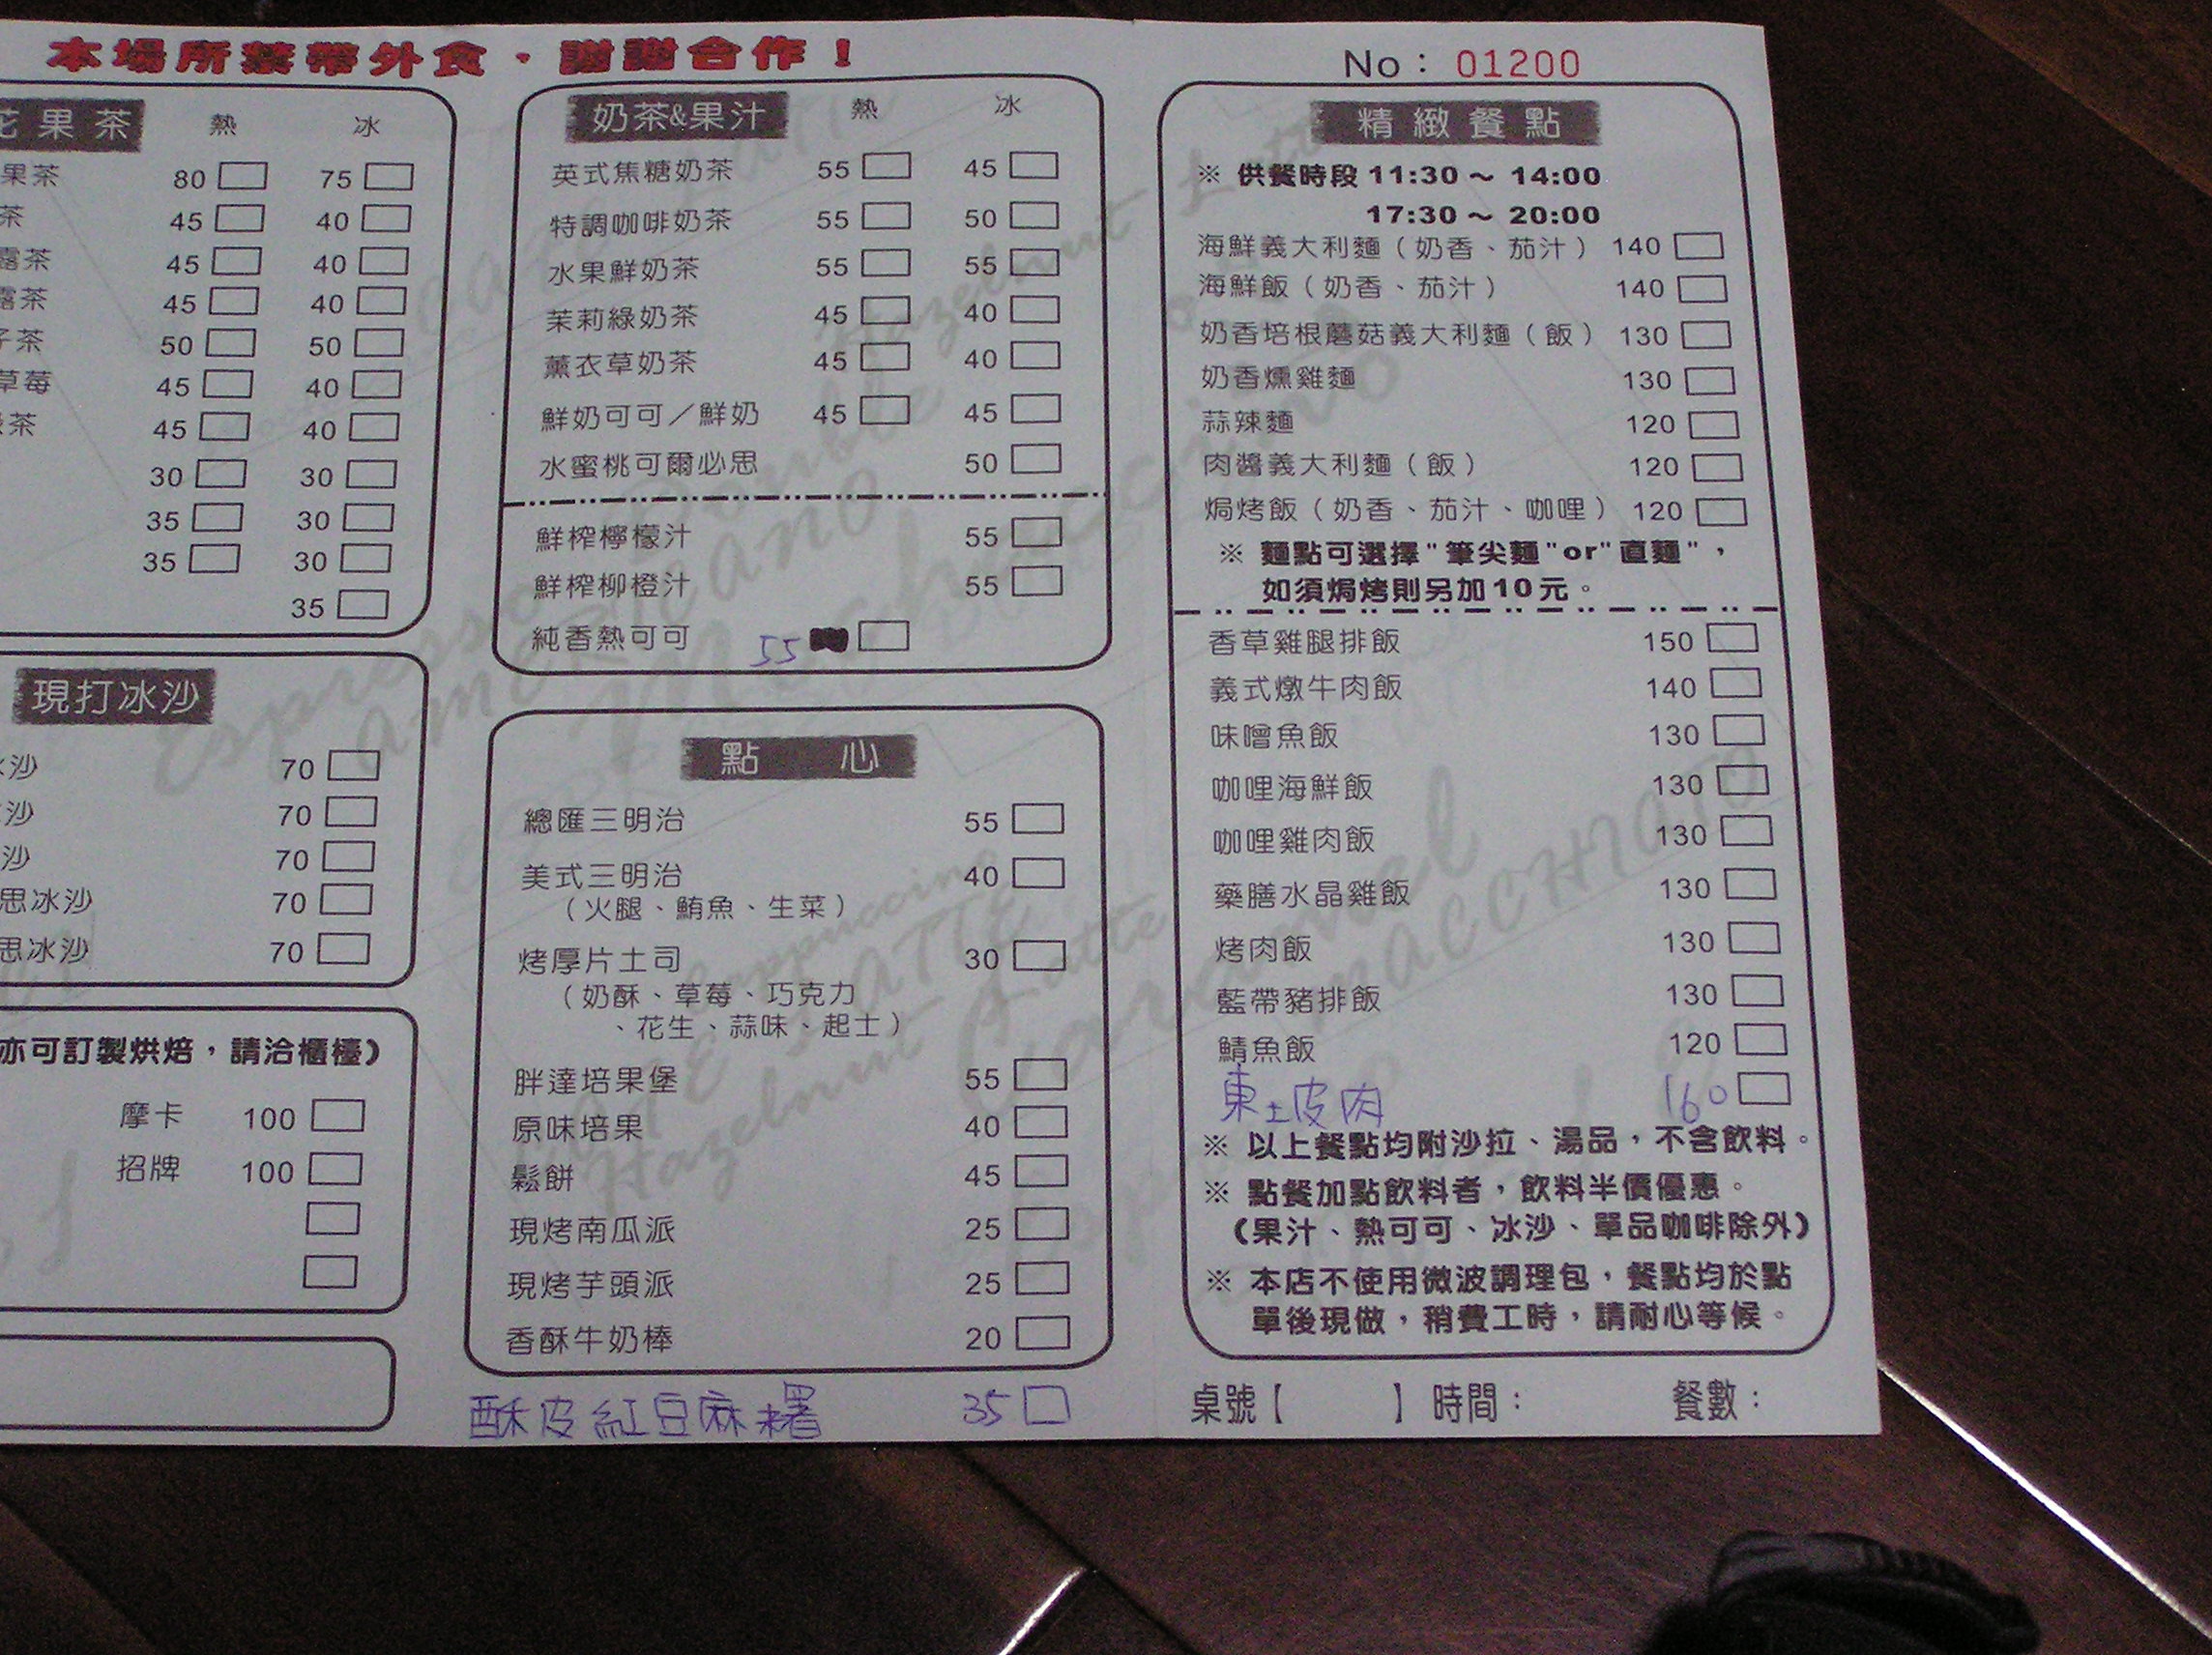 本場所禁帶外食，謝謝合作！
No： 01200
花果茶 熱 冰
果茶 80 75
茶 45 40
露茶 45 40
露茶 45 40
子茶 50 50
草莓 45 40
茶 45 40
30 30
35 30
35 30
35
現打冰沙
冰沙 70
沙 70
沙 70
思冰沙 70
思冰沙 70
亦可訂製烘焙，請洽櫃檯)
摩卡 100
招牌 100
奶茶&果汁 熱 冰
英式焦糖奶茶 55 45
特調咖啡奶茶 55 50
水果鮮奶茶 55 55
茉莉綠奶茶 45 40
薰衣草奶茶 45 40
鮮奶可可／鮮奶 45 45
水蜜桃可爾必思 50
鮮榨檸檬汁 55
鮮榨柳橙汁 55
純香熱可可 55
點 心
總匯三明治 55
美式三明治 40
（火腿、鮪魚、生菜）
烤厚片土司 30
（奶酥、草莓、巧克力
、花生、蒜味、起士）
胖達培果堡 55
原味培果 40
鬆餅 45
現烤南瓜派 25
現烤芋頭派 25
香酥牛奶棒 20
酥皮紅豆麻糬 35
精緻餐點
※ 供餐時段 11:30～ 14:00
17:30～ 20:00
海鮮義大利麵（奶香、茄汁） 140
海鮮飯（奶香、茄汁） 140
奶香培根蘑菇義大利麵（飯） 130
奶香燻雞麵 130
蒜辣麵 120
肉醬義大利麵（飯） 120
焗烤飯（奶香、茄汁、咖哩） 120
※ 麵點可選擇"筆尖麵"or"直麵"，
如須焗烤則另加10元。
香草雞腿排飯 150
義式燉牛肉飯 140
味噌魚飯 130
咖哩海鮮飯 130
咖哩雞肉飯 130
藥膳水晶雞飯 130
烤肉飯 130
藍帶豬排飯 130
鯖魚飯 120
東土皮肉 160
※ 以上餐點均附沙拉、湯品，不含飲料。
※ 點餐加點飲料者，飲料半價優惠。
（果汁、熱可可、冰沙、單品咖啡除外）
※ 本店不使用微波調理包，餐點均於點
單後現做，稍費工時，請耐心等候。
桌號【 】時間： 餐數：